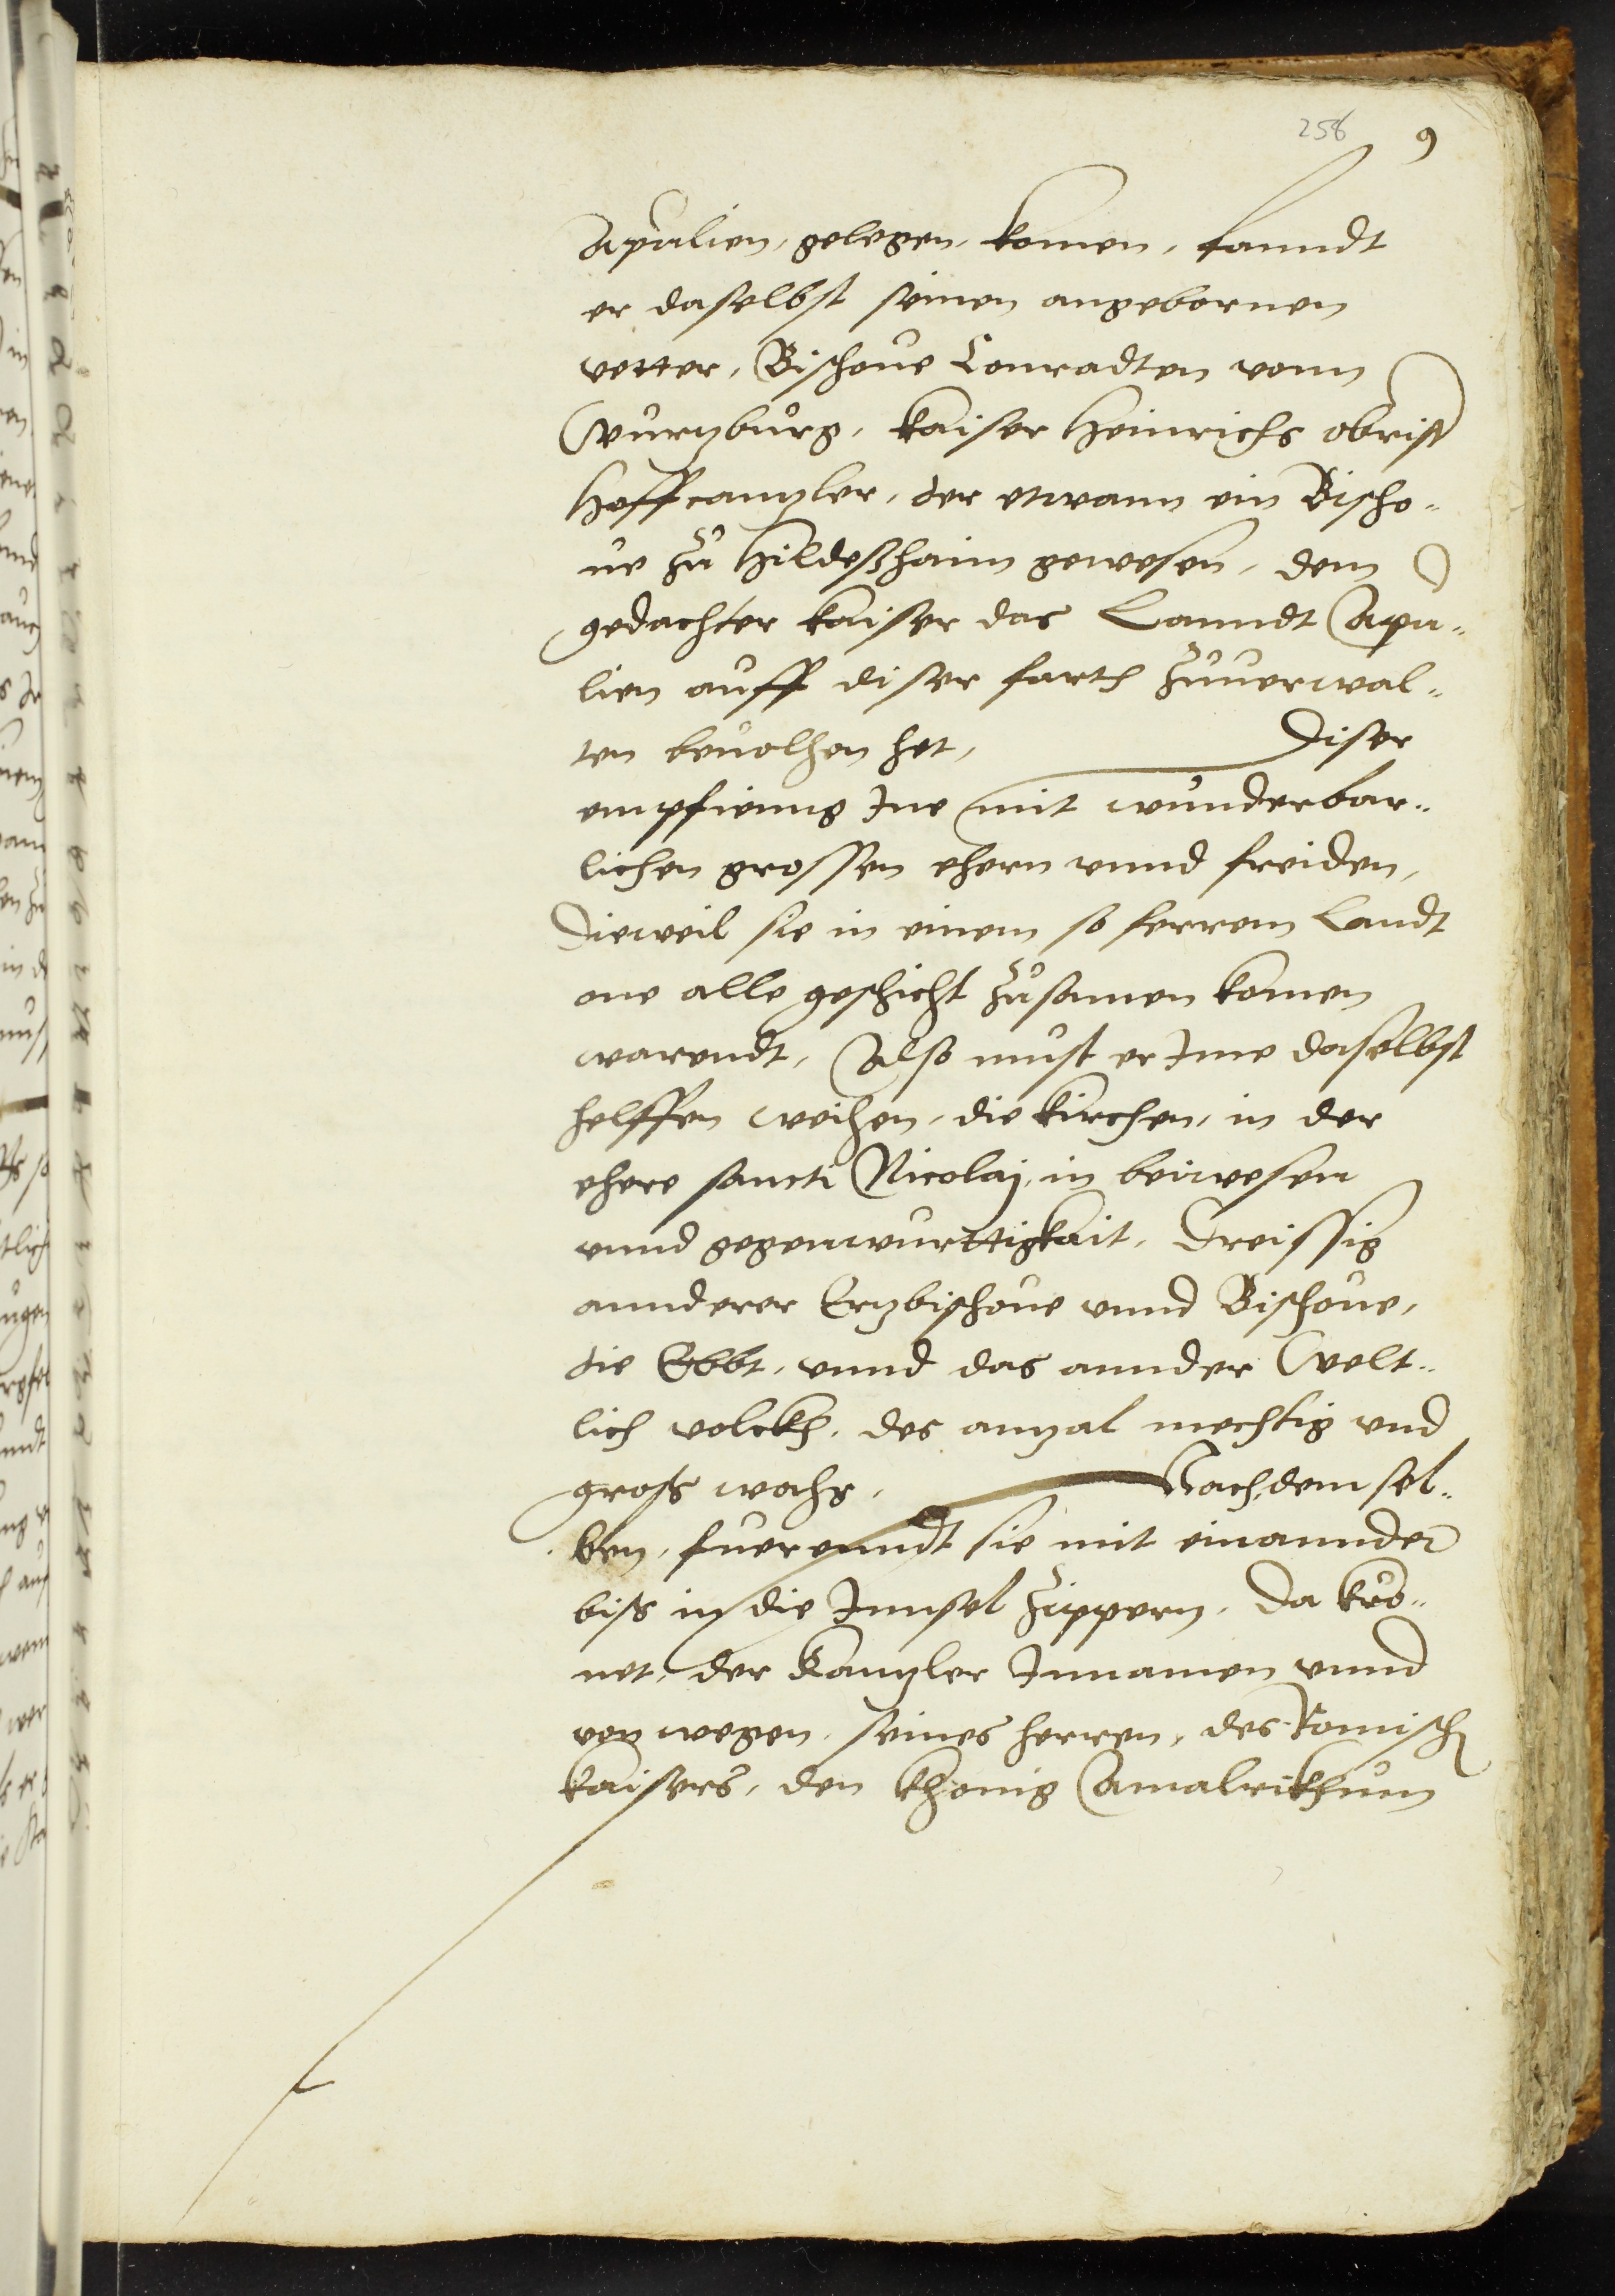 258 9
Apulien, gelegen, komen, fanndt
er daselbst seinen angebornen
vetter, Bischoue Conradten vonn
Wurzburg, kaiser Heinrichs obrist
Hoffcanzler, der etwann ein Bischo-
ue zu Hildeßhaim gewesen, dem
gedachter kaiser das Lanndt Apu-
lien auff diser farth zuuerwal-
ten beuolhen het, Diser
empfienng Ine mit wunderbar-
lichen grossen ehern vnnd freiden,
Dieweil sie in einem so ferrem Landt
one alle geschicht zusamen komen
warendt, Also must er Ime daselbst
helffen weihen, die kirchen, in der
ehere sancti Nicolaj, in beiwesen
vnnd gegenwurttigkait, Dreissig
annderer Erzbischoue vnnd Bischoue,
die Ebbt, vnnd das annder Welt-
lich volckh, des anzal mechtig vnd
gross wahs, Nach dem sel-
ben, fuerenndt sie mit einannder
biss in die Innsel Zippern, Da kro-
net, der Kanzler Innamen vnnd
von wegen, seines herren, des Romisch
kaisers, den khonig Amalrikhum